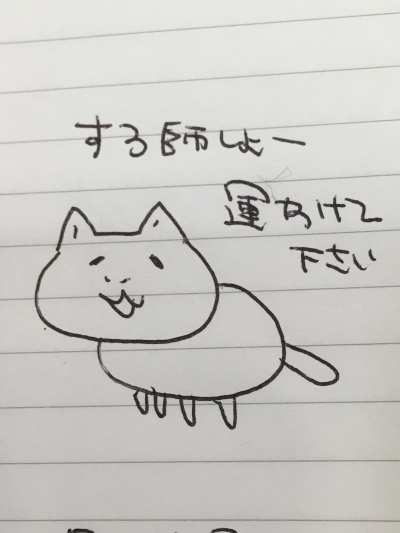 する師しよー
運あけて
下さい